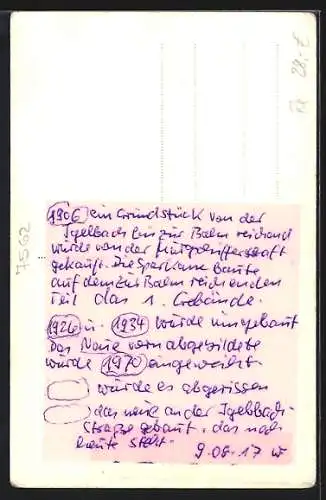 28,- €
7562
1906 ein Grundstück von der
Igelbach bis zur Bahn reichend
wurde von der
gekauft. Die Sparkasse baute
auf dem zur Bahn reichenden
Teil das 1. Gebäude.
1926 u. 1934 wurde umgebaut
Das Neue vorn abgebildete
wurde 1970 eingeweiht.
wurde es abgerissen
das neue an der Igelbach-
Strasse gebaut, das noch
heute steht.
9.08.17 w